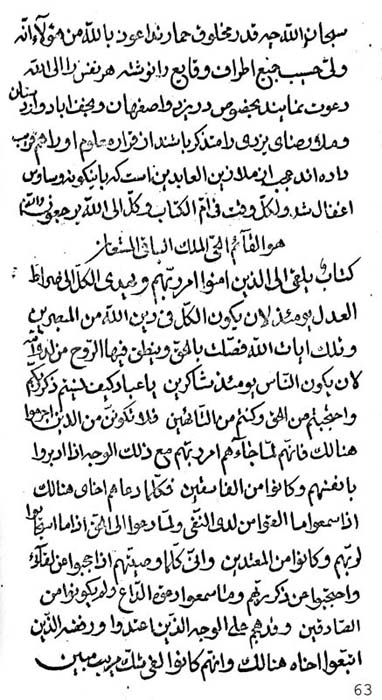 سبحان الله چه قدر مخلوق حمارند اعوذ بالله من هؤلاء انه
ولیّ حسیب جمیع اطراف وقایع را نوشته هر نفس را الی الله
دعوت نمایند بخصوص در یزد و اصفهان و نجف اباد و اردستان
و ملا رضای یزدی را متذکر باشند از قراره علوم او را هم
داده اند عجب از ملا زین العابدین است که باینگونه وساوس
اغفال شد ولکل وقت فی ام الکتاب وکل الی الله یرجعون
هو القائم الحیّ الملک الباقی المستعان
کتاب یلقی الی الذین امنوا امر ربهم و یهدی الکل الی صراط
العدل یومئذ لان یکون الکل فی دین الله من المبصرین
و تلک ایات الله فصّلت بالحق و ینطق فیها الروح من لدی
لان یکون الناس یومئذ شاکرین یا عباد کیف نسیتم ذکر ربکم
واحتجبتم عن الحق وکنتم من التائهین فلا تکوننّ من الذین اجرموا
هنالک فانهم لما جاءهم امر ربهم مع ذلک الوجه اذا ادبروا
بانفسهم وکانوا من الفاسقین فکلما دعاهم اخای هنالک
اذا سمعوا ما القی من لدی النقی و لما دعوا الی الحق اذا ما استجابوا
لربهم وکانوا من المعتدین وانّی کلما وصیتهم اذا حجبوا عن لقائه
واحتجبوا عن ذکر ربهم وما سمعوا دعوة الداع ولم یکونوا من
الصادقین ومنهم علی الوجه الذین عندوا ورفضه الذین
اتبعوا اخاه هنالک وانهم کانوا لفی شک مریب مبین
63